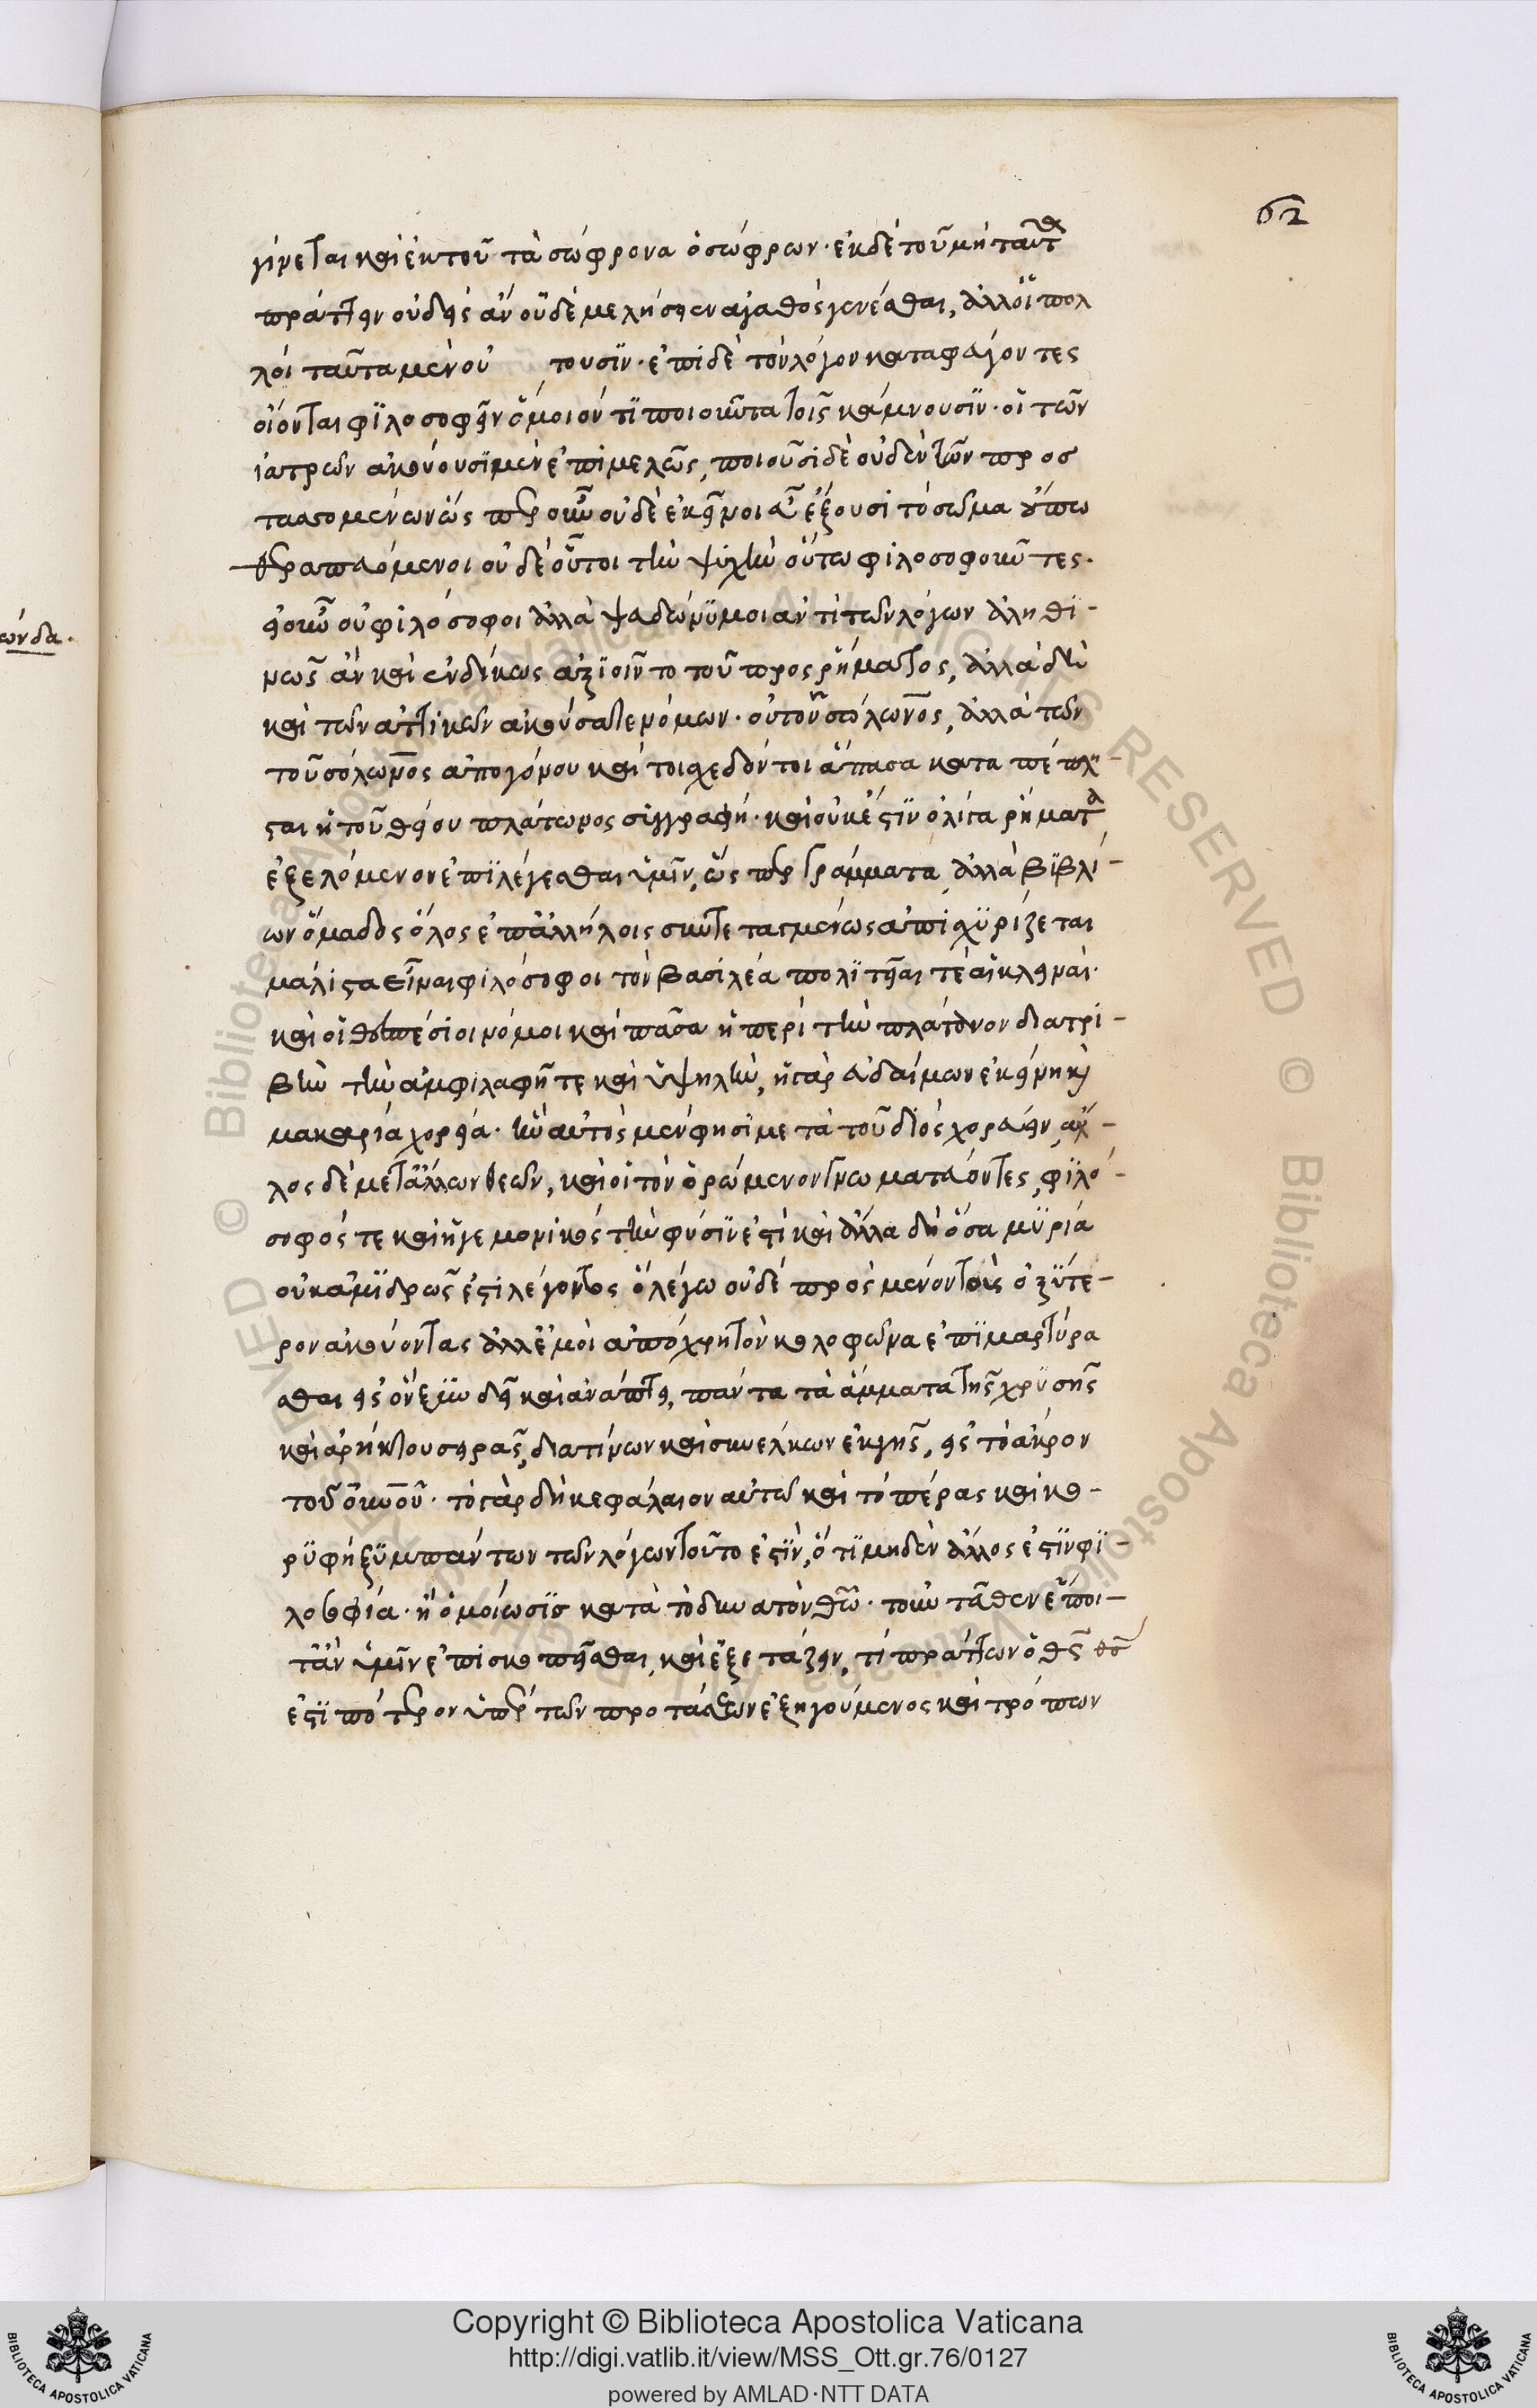 62
γίνεται καὶ ἐκ τοῦ τὰ σώφρονα ὁ σώφρων· ἐκ δὲ τοῦ μὴ ταῦτα
πράττειν οὐδεὶς ἂν οὐδὲ μελήσειεν ἀγαθὸς γενέσθαι, ἀλλ' οἱ πολ
λοὶ ταῦτα μὲν οὐ τουσιν· ἐπὶ δὲ τὸν λόγον καταφεύγοντες
οἴονται φιλοσοφεῖν ὅμοιόν τι ποιοῦντα τοῖς κάμνουσιν· οἳ τῶν
ἰατρῶν ἀκούουσι μὲν ἐπιμελῶς, ποιοῦσι δὲ οὐδὲν τῶν προσ
τασσομένων ὥσπερ οὖν οὐδὲ ἐκεῖνοι εὖ ἕξουσι τὸ σῶμα οὕτω
θεραπευόμενοι οὐδὲ οὗτοι τὴν ψυχὴν οὕτω φιλοσοφοῦντες·
εἰ οὖν οὐ φιλόσοφοι ἀλλὰ ψευδώνυμοι ἀντὶ τῶν λόγων ἀληθι-
νῶς ἂν καὶ ἐνδίκως ἀξιοῖντο τοῦ προσρήματος, ἀλλὰ δὴ
καὶ τῶν ἀττικῶν ἀκούσατε νόμων· οὐ τοῦ σόλωνος, ἀλλὰ τῶν
τοῦ σόλωνος ἀπογόνου καί τοι σχεδόν τοι ἅπασα κατα πέπλη-
σται ἡ τοῦ θείου πλάτωνος συγγραφή· καὶ οὐκ ἔστιν ὀλίγα ῥήματα
ἐξελόμενον ἐπιλέγεσθαι ὑμῖν, ὥσπερ γράμματα, ἀλλὰ βιβλί-
ων ὅμαδος ὅλος ἐπ' ἀλλήλοις συντεταγμένως ἀπισχυρίζεται
μάλιστα εἶναι φιλόσοφοι τὸν βασιλέα πολιτεῖαι τέ αἱ κλειναί·
καὶ οἱ θεσπέσιοι νόμοι καὶ πᾶσα ἡ περὶ τὴν πλάτανον διατρι-
βὴν τὴν ἀμφιλαφῆ τε καὶ ὑψηλήν, ἡ γὰρ εὐδαίμων ἐκείνη καὶ
μακαρία χορεία· ἣν αὐτὸς μέν φησι μετὰ τοῦ διὸς χορεύειν, ἄλ-
λος δὲ μετ' ἄλλων θεῶν, καὶ οἱ τὸν ὁρώμενον γνωματεύοντες, φιλό-
σοφός τε καὶ ἡγεμονικὸς τὴν φύσιν ἐστὶ καὶ ἄλλα δὴ ὅσα μυρία
οὐκ ἀμυδρῶς ἐστὶ λέγοντος ὃ λέγω οὐδὲ προσμένοντας ὀξύτε-
ρον ἀκούοντας ἀλλ' ἐμοὶ ἀπόχρη τὸν κολοφῶνα ἐπιμαρτύρα
σθαι εἰς ὃν ξυνδεῖ καὶ ἀνάπτει, πάντα τὰ ἅμματα τῆς χρυσῆς
καὶ ἀρήκτου σειρᾶς, διατίνων καὶ συνέλκων ἐκ γῆς, εἰς τὸ ἄκρον
τοῦ οὐνοῦ· τὸ γὰρ δὴ κεφάλαιον αὐτῶ καὶ τὸ πέρας καὶ κο-
ρυφὴ ξυμπάντων τῶν λόγων τοῦτο ἐστὶν, ὅτι μηδὲν ἄλλος ἐστὶν φι-
λοσοφία· ἢ ὁμοίωσις κατὰ τὸ δυνατὸν θεῶ· τοὐνταῦθεν εἴποι-
τ' ἂν ὑμῖν ἐπισκοπεῖσθαι, καὶ ἐξετάζειν, τί πράττων ὁ θς θς
ἐστὶ πότερον ὑπὲρ τῶν προτάσεων ἐξηγούμενος καὶ τρόπων
ώνδα.
Copyright © Biblioteca Apostolica Vaticana
http://digi.vatlib.it/view/MSS_Ott.gr.76/0127
powered by AMLAD·NTT DATA